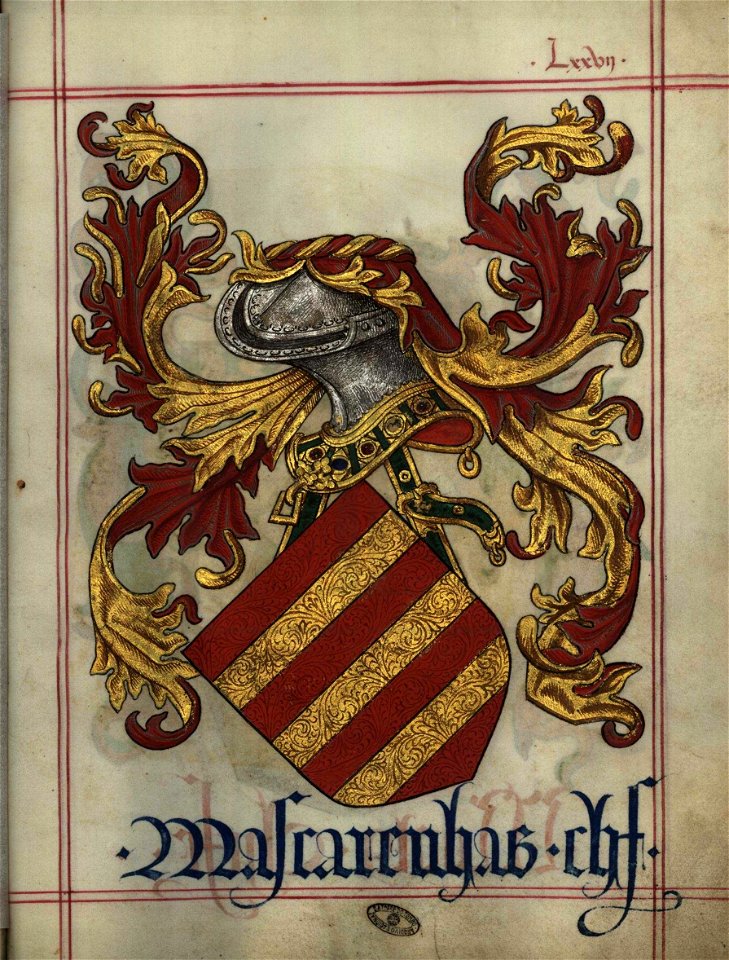 · Lxxvij ·
· Mascarenhas · chf ·